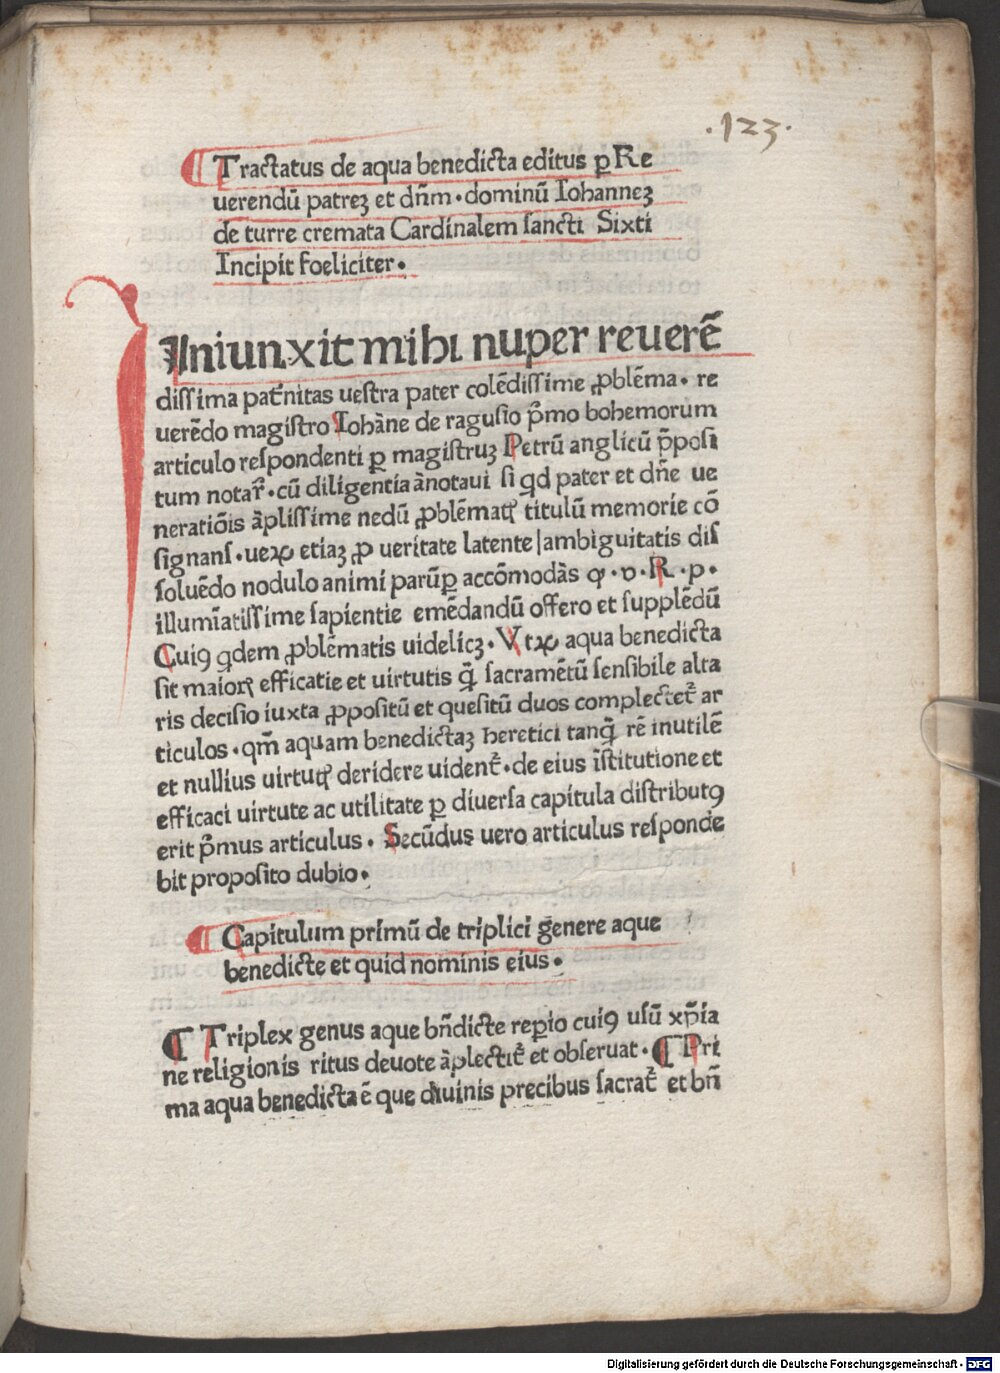 .123.
¶ Tractatus de aqua benedicta editus ꝑ Re
uerendū patreꝫ et dn̄m · dominū Iohanneꝫ
de turre cremata Cardinalem ſancti Sixti
Incipit foeliciter.
INiunxit mihi nuper reuerē
diſſima pat̄nitas ueſtra pater colēdiſſime ꝓblēma · re
uerēdo magiſtro Iohāne de raguſio p̄mo bohemorum
articulo reſpondenti ꝑ magiſtruꝫ Petrū anglicū p̄poſi
tum notar̄ · cū diligentia ānotaui ſi qd pater et dn̄e ue
neratiōis āpliſſime nedū ꝓblēmatꝭ titulū memorie cō
ſignanſ · ueꝝ etiaꝫ ꝓ ueritate latente|ambiguitatis diſ
ſoluēdo nodulo animi parūꝑ accōmodās ꝙ · v · R · p ·
illumīatiſſime ſapientie emēdandū offero et ſupplēdū
Cuiꝰ qdem ꝓblēmatis uidelicꝫ · Vtꝝ aqua benedicta
ſit maiorꝭ efficatie et uirtutis q̄ ſacramētū ſenſibile alta
ris deciſio iuxta ꝓpoſitū et queſitū duos complectet᷑ ar
ticulos · qm̄ aquam benedictaꝫ heretici tanq̄ rē inutilē
et nullius uirtutꝭ deridere uident᷑ · de eius īſtitutione et
efficaci uirtute ac utilitate ꝑ diuerſa capitula diſtributꝰ
erit p̄mus articulus · Secūdus uero articulus reſponde
bit propoſito dubio.
¶ Capitulum primū de triplici genere aque
benedicte et quid nominis eius.
¶ Triplex genus aque bn̄dicte reꝑio cuiꝰ uſū xp̄ia
ne religionis ritus deuote āplectit᷑ et obſeruat · ¶ Pri
ma aqua benedicta ē que diuinis precibus ſacrat᷑ et bn̄
Digitalisierung gefördert durch die Deutsche Forschungsgemeinschaft - DFG